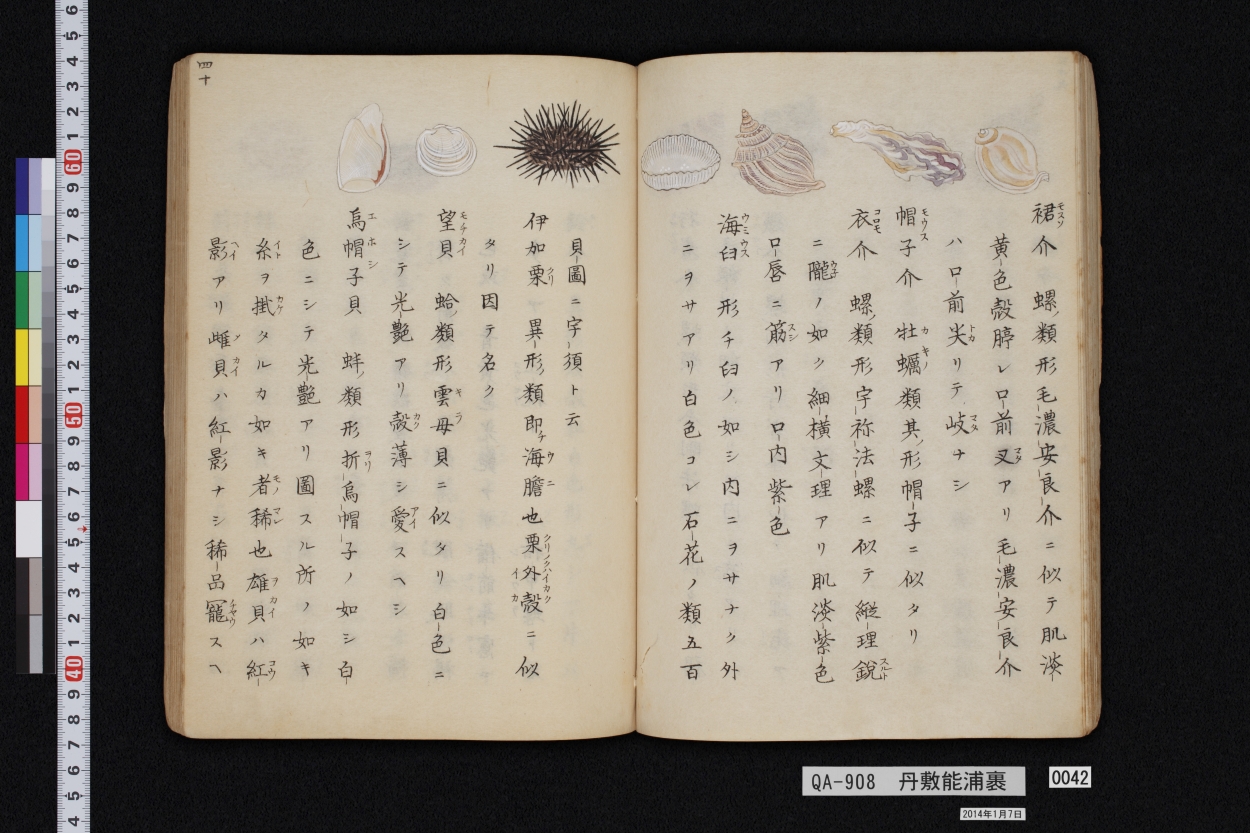 裙介 螺ノ類形毛濃安良介ニ似テ肌淡
黄色殻脖レ口前叉アリ毛濃安良介
ハ口前尖リテ岐ナシ
帽子介 牡蠣ノ類其ノ形帽子ニ似タリ
衣介 螺ノ類形字祢法螺ニ似テ縦理鋭
ニ隴ノ如ク細横文理アリ肌淡紫色
口唇ニ筋アリ口内紫色
海臼 形チ臼ノ如シ内ニヲサナク外
ニヲサアリ白色コレ石花ノ類五百
貝圖ニ字須ト云
伊加栗 異形ノ類即チ海膽也栗ノ外殻ニ似
タリ因テ名ク
望貝 蛤ノ類形雲母貝ニ似タリ白色ニ
シテ光艷アリ殻薄シ愛スヘシ
烏帽子貝 蚌ノ類形折烏帽子ノ如シ白
色ニシテ光艷アリ圖スル所ノ如キ
糸ヲ掛タルカ如キ者稀也雄貝ハ紅
影アリ雌貝ハ紅影ナシ稀品寵スヘ
四十
QA-908 丹敷能浦裹
0042
2014年1月7日